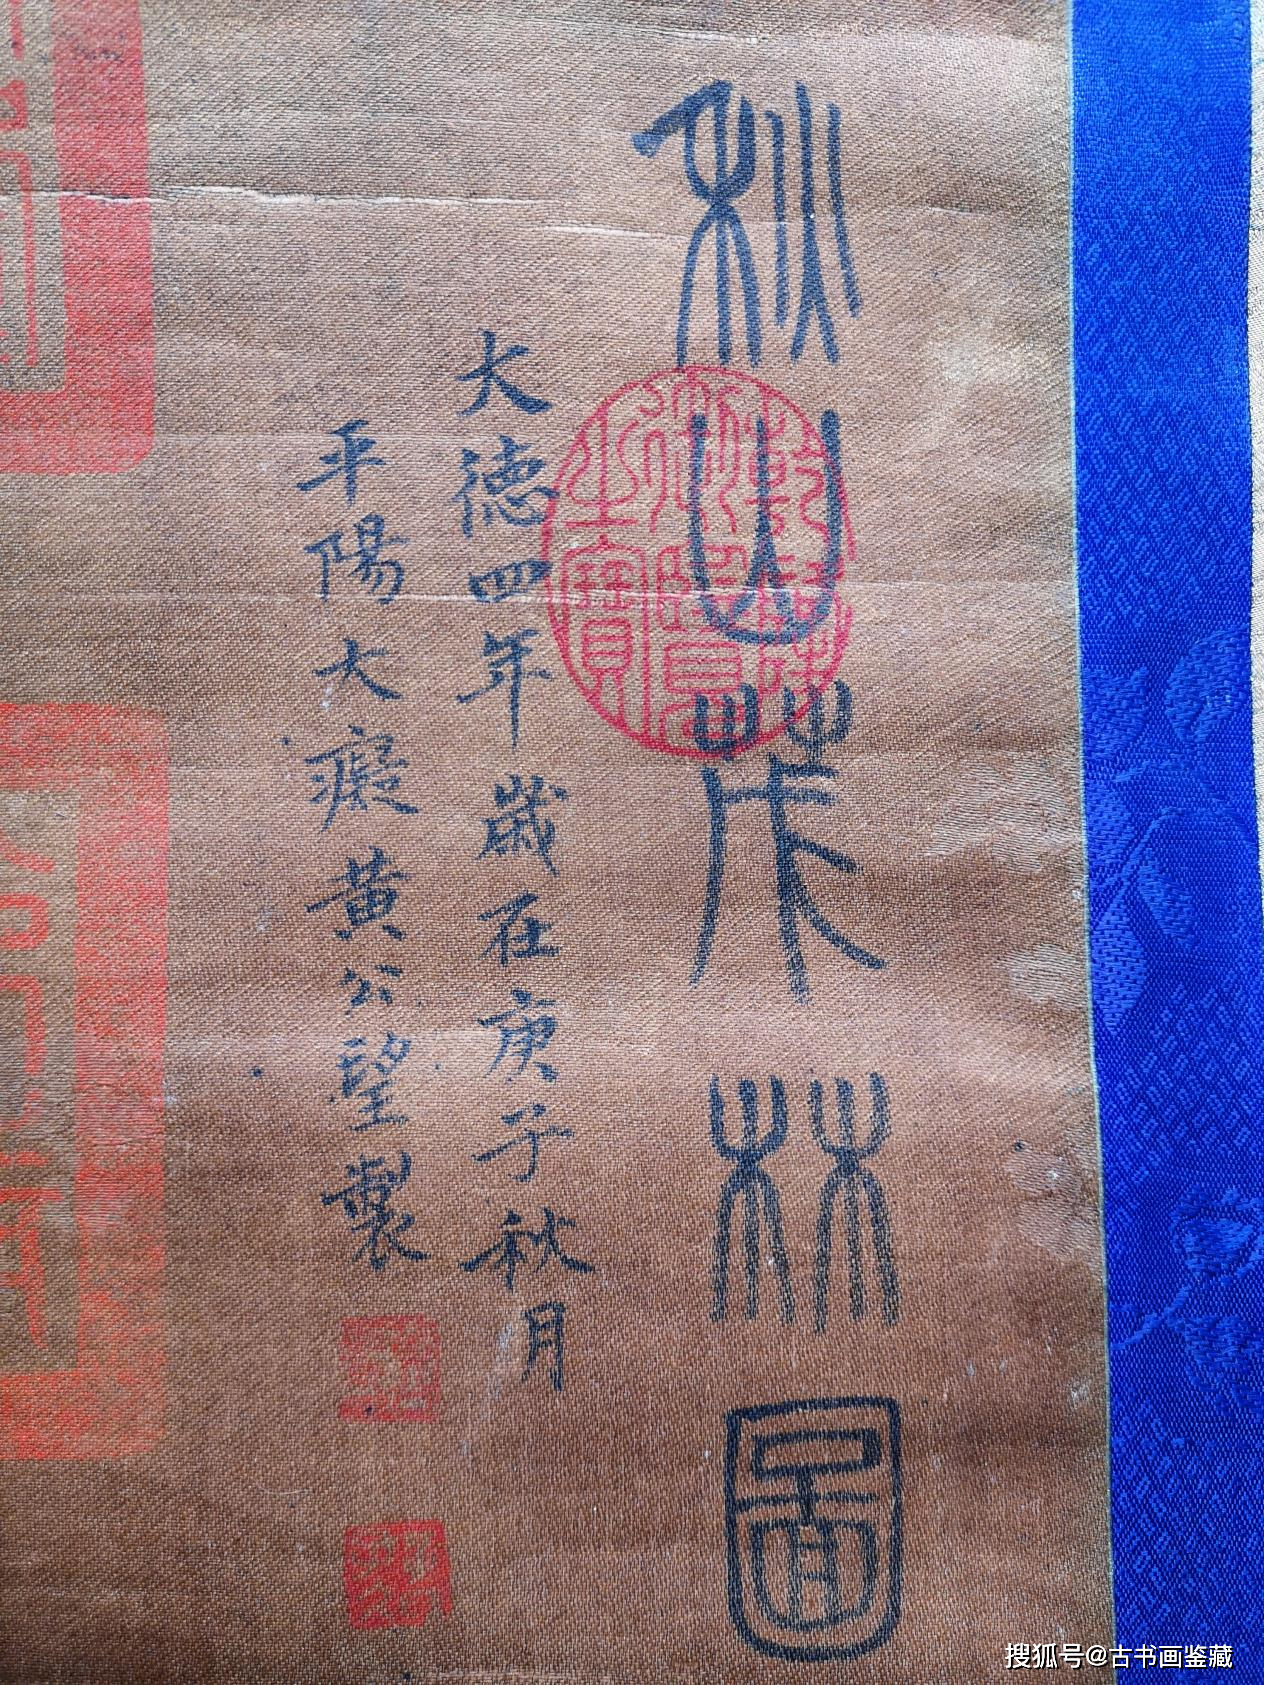 秋山茂林圖
乾隆御覽之寶
大德四年歲在庚子秋月
平陽大癡黃公望製
搜狐号@古书画鉴藏